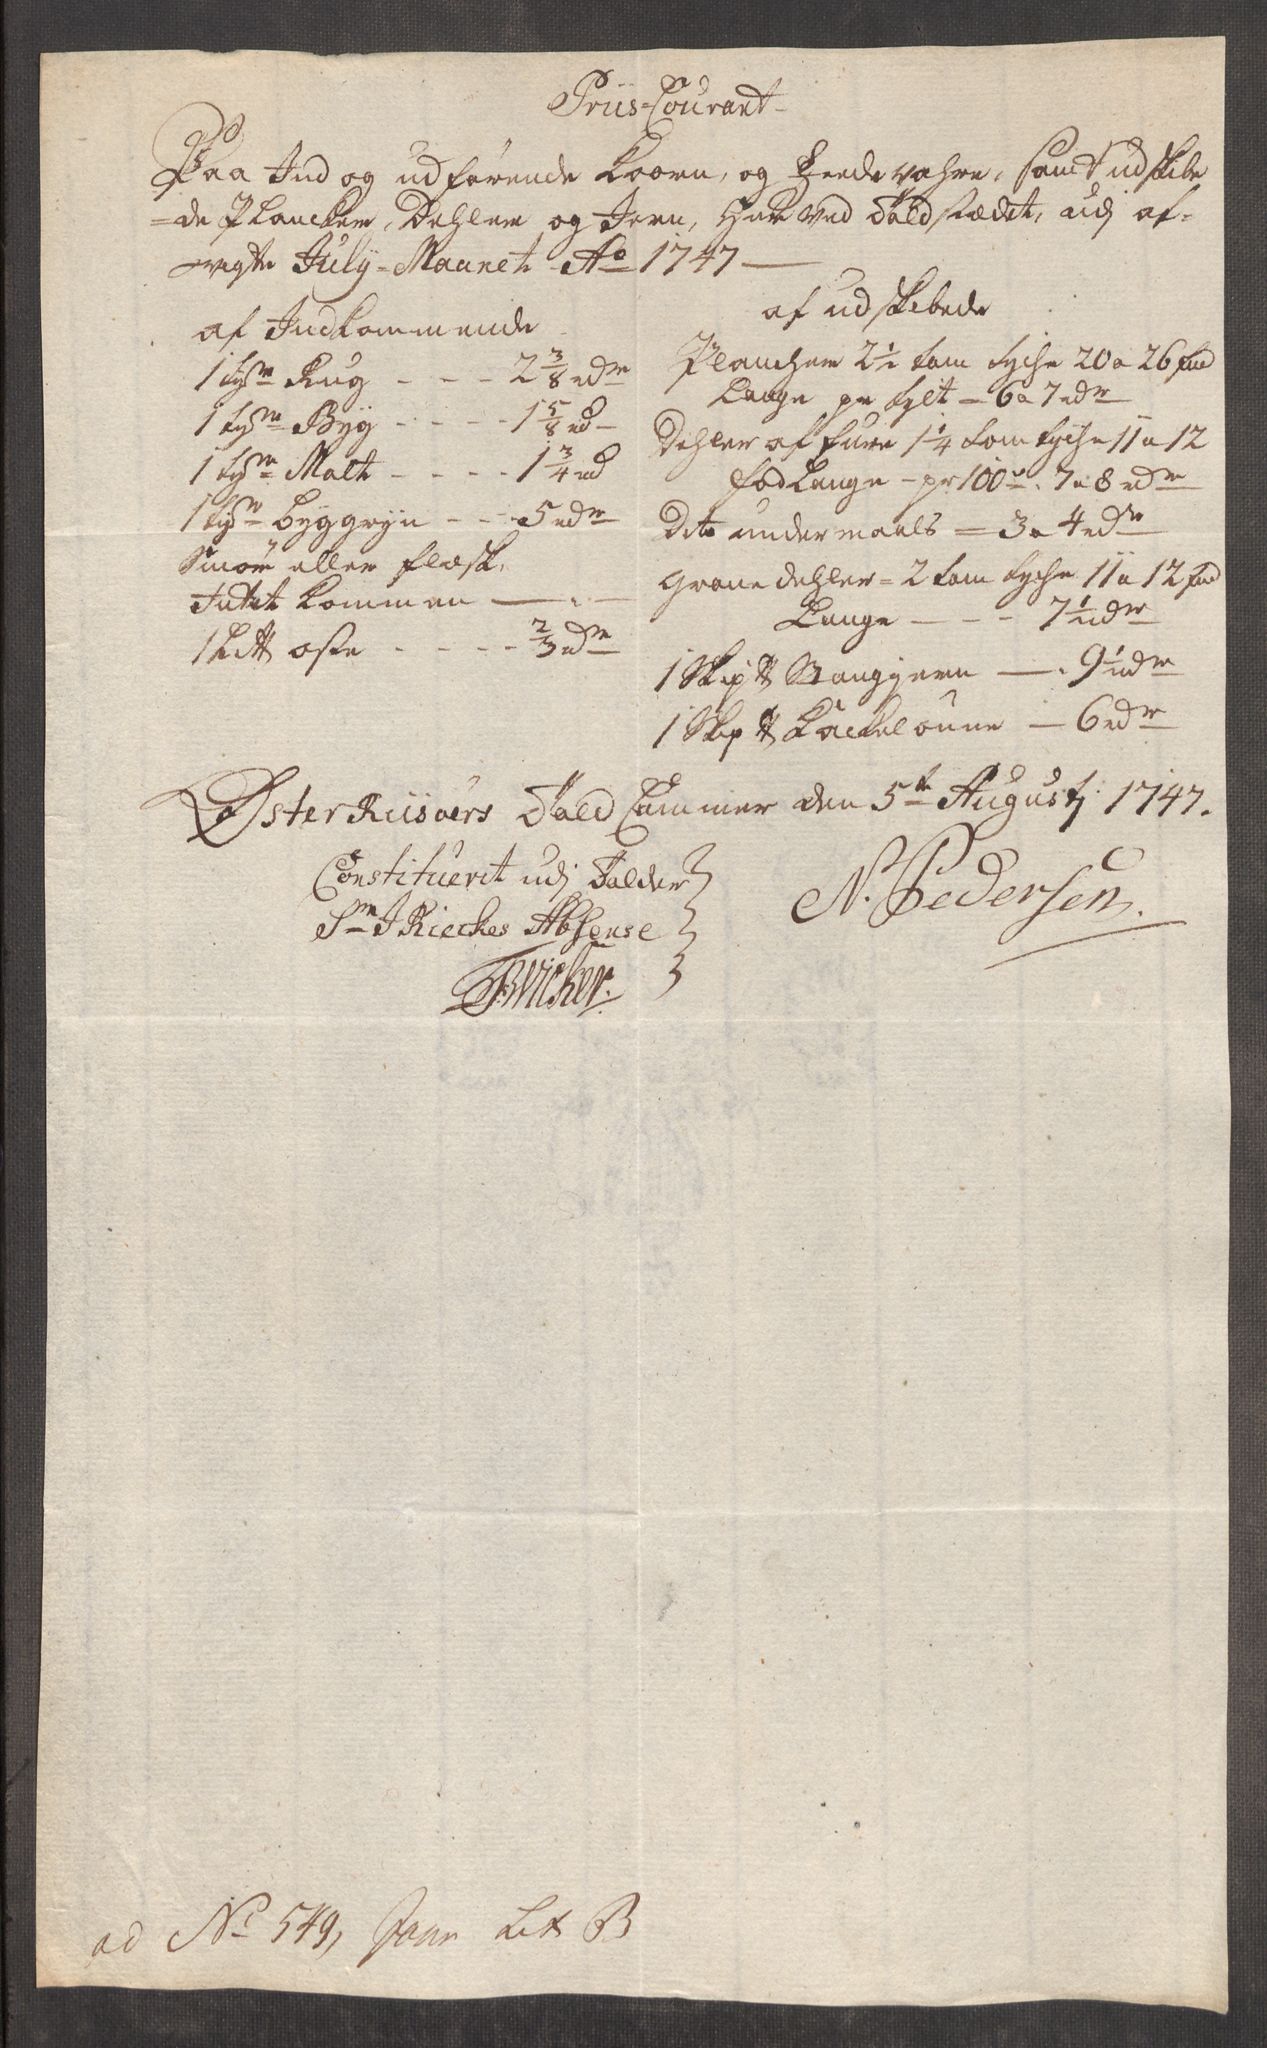 Priis-Courant
Paa Ind og udførende Koorn, og Feede vahre, samt udskibe
=de Plancker, Dehler og Jern, Her ved Toldstædet, udj af-
-vigte July-Maanet Ao 1747
af Indkommende
1 tyne Rug - - - 2 3/8 rdr
1 tyne Byg - - - - 1 5/8 rd
1 tyne Malt - - - - 1 3/4 rd
1 tyne byggryn - - 5 rdr
Smør eller flæsk,
Intet kommen
1 Lit ℔ oste - - - - 2/3 rdr
af udskibede
Plancher 2 1/2 tom tyche 20 a 26 fod
Lange pr tylt - 6 a 7 rdr
Dehler af fure 1 1/4 tom tyche 11 a 12
fod Lange - pr 100de 7 a 8 rdr
Dito undermaals = 3 a 4 rdr
Grane dehler = 2 tom tyche 11 a 12 fod
Lange - - - 7 1/2 rdr
1 Skip ℔ Stangjern 9 1/2 rdr
1 Skip ℔ Kackelovne 6 rdr
Øster Riisøers Told Cammer den 5te Augustj: 1747.
Constituerit udj Tolder
Sr J Rieckes Absense
N. Pedersen.
ad No 549, Lit B